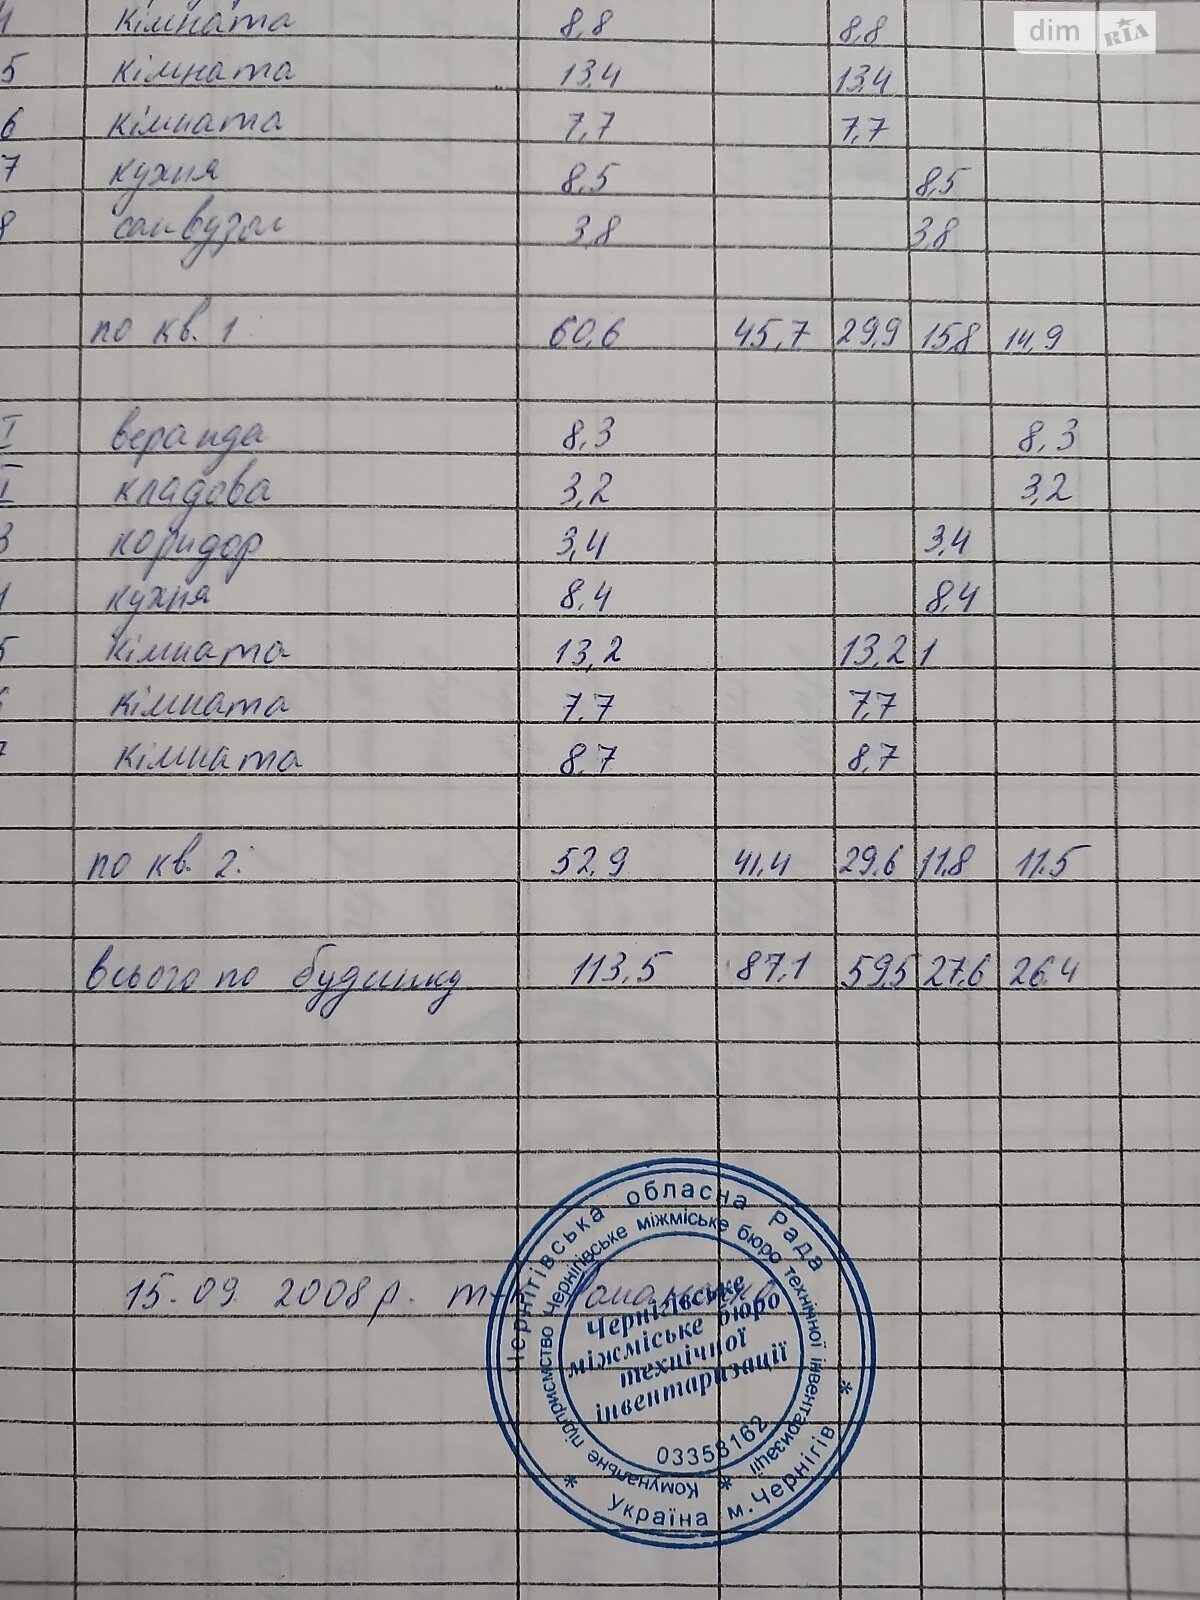 dim RIA
4 кімната 8,8 8,8
5 кімната 13,4 13,4
6 кімната 7,7 7,7
7 кухня 8,5 8,5
8 санвузол 3,8 3,8
по кв. 1: 60,6 45,7 29,9 15,8 14,9
I веранда 8,3 8,3
I кладова 3,2 3,2
3 коридор 3,4 3,4
4 кухня 8,4 8,4
5 кімната 13,2 13,2 1
кімната 7,7 7,7
7 кімната 8,7 8,7
по кв. 2: 52,9 41,4 29,6 11,8 11,5
всього по будинку 113,5 87,1 59,5 27,6 26,4
15.09 2008 р.
Чернігівська обласна Рада
Комунальне підприємство Чернігівське міжміське бюро технічної інвентаризації
Чернігівське
міжміське бюро
технічної
інвентаризації
03358162
* Україна м.Чернігів *